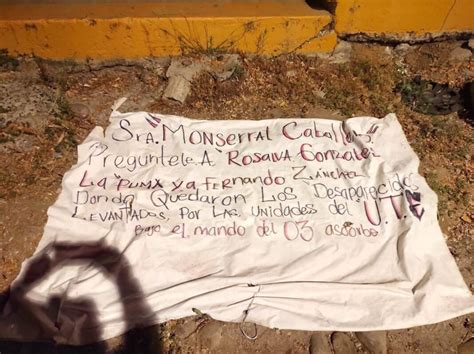 Sra "Monserrat Caballero"
Pregúntele A "Rosalva González
La "Puma" ya Fernando Z. Sánchez
Donda Quedaron Los Desaparecidos
Levantados, Por Las Unidades del U.T.E
Bajo el mando del 03 ascorbe